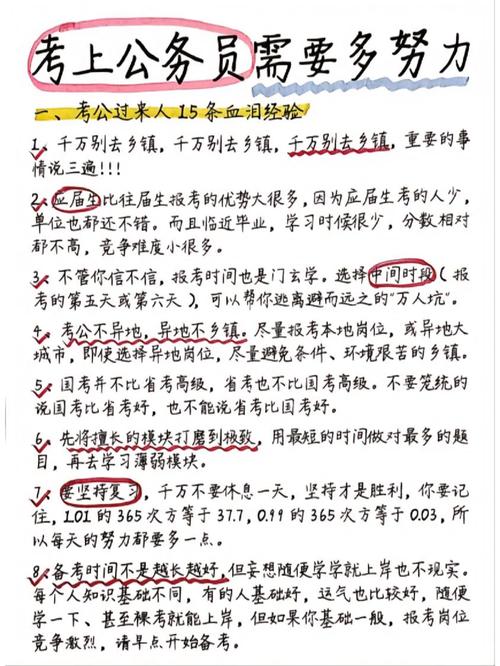 考上公务员需要多努力
一、考公过来人15条血泪经验
1、千万别去乡镇，千万别去乡镇，千万别去乡镇，重要的事
情说三遍!!!
2、应届生比往届生报考的优势大很多，因为应届生考的人少，
单位也都还不错。而且临近毕业，学习时候很少，分数相对
都不高，竞争难度小很多。
3、不管你信不信，报考时间也是门玄学。选择中间时段（报
考的第五天或第六天），可以帮你逃离避而远之的“万人坑”。
4、考公不异地，异地不乡镇。尽量报考本地岗位，或异地大
城市，即使选择异地岗位，尽量避免条件、环境艰苦的乡镇。
5、国考并不比省考高级，省考也不比国考高级。不要笼统的
说国考比省考好，也不能说省考比国考好。
6、先将擅长的模块打磨到极致，用最短的时间做对最多的题
目，再去学习薄弱模块。
7、要坚持复习，千万不要休息一天，坚持才是胜利，你要记
住，1.01的365次方等于37.7，0.99的365次方等于0.03，所
以每天的努力都要多一点。
8、备考时间不是越长越好，但妄想随便学学就上岸也不现实。
每个人知识基础不同，有的人基础好，运气也比较好，随便
学一下、甚至裸考就能上岸，但如果你基础一般，报考岗位
竞争激烈，请早点开始备考。